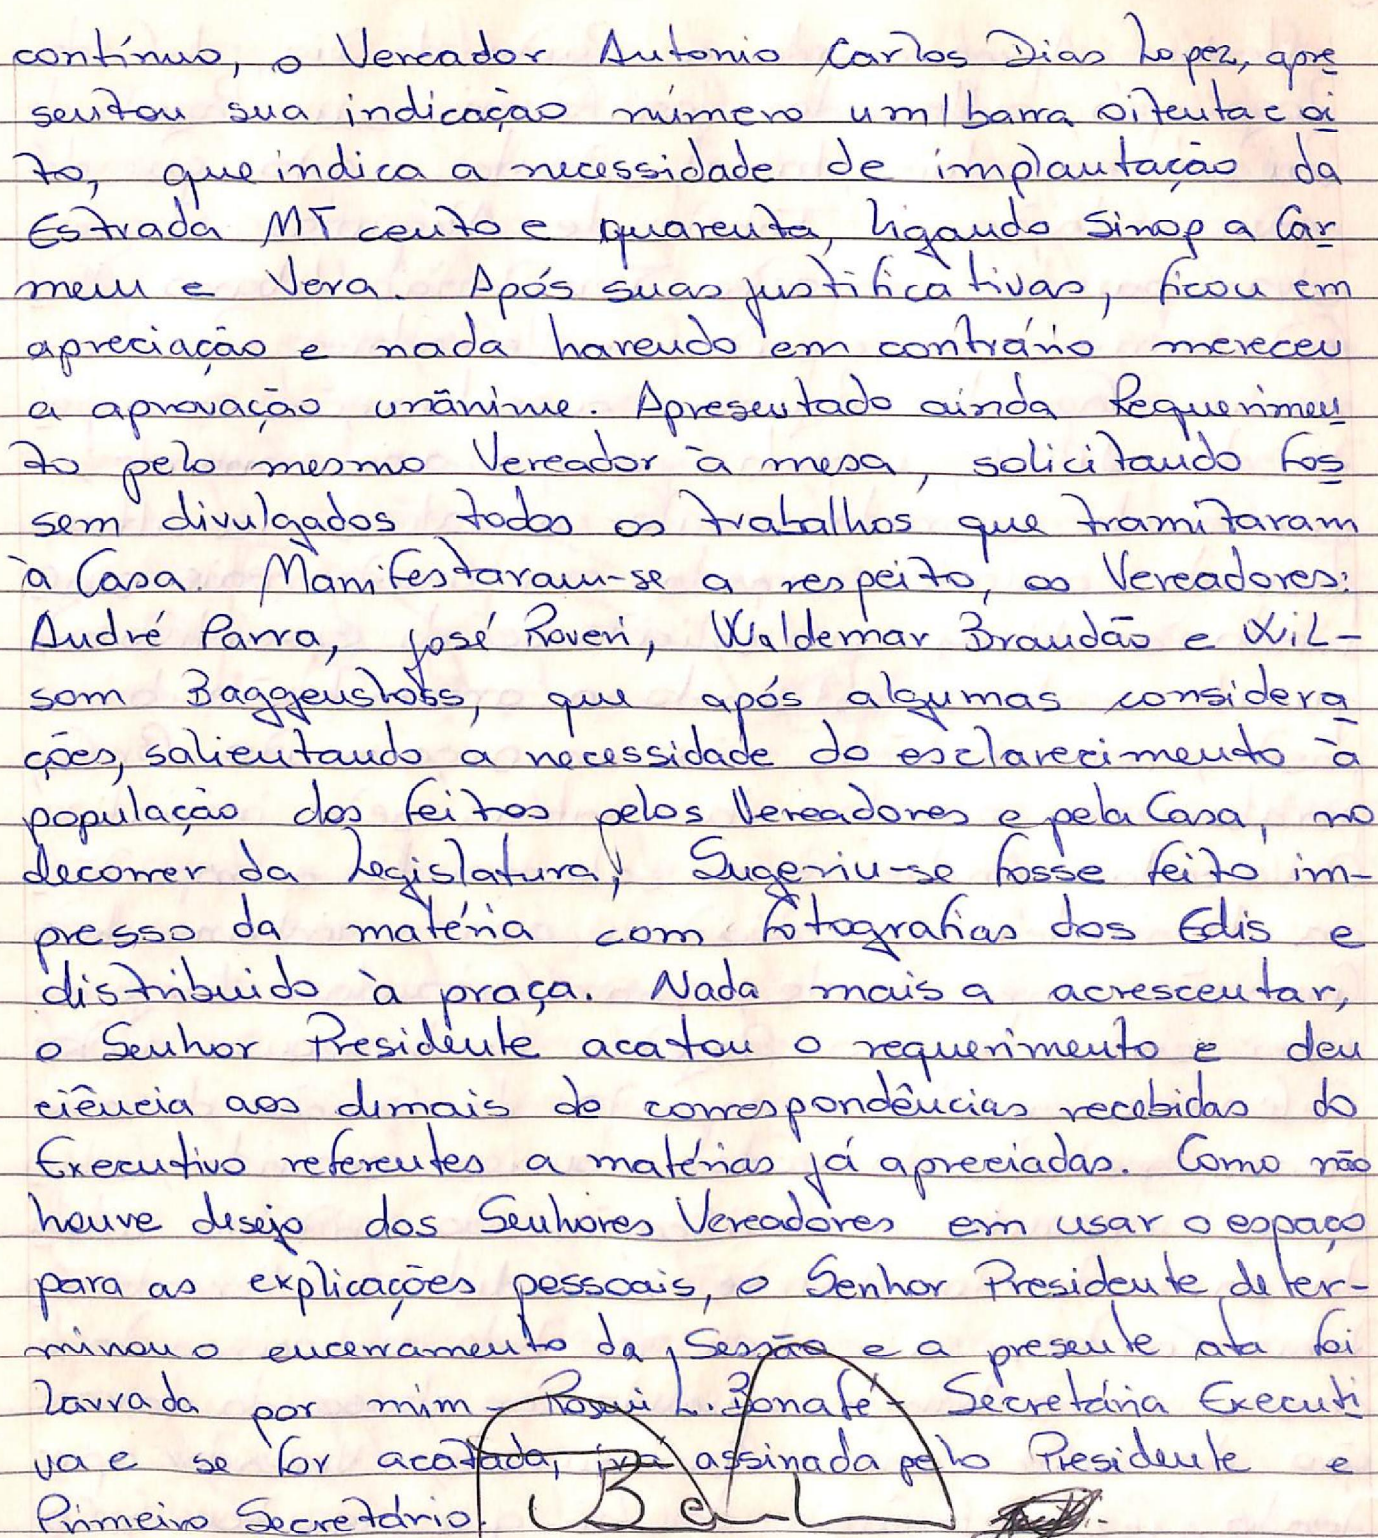 contínuo, o Vereador Antonio Carlos Dias Lopez, apre
sentou sua indicação número um/barra oitenta e oi
to, que indica a necessidade de implantação da
Estrada MT cento e quarenta, ligando Sinop a Car
mem e Vera. Após suas justificativas, ficou em
apreciação e nada havendo em contrário mereceu
a aprovação unânime. Apresentado ainda Requerimen
to pelo mesmo Vereador à mesa, solicitando fos
sem divulgados todos os trabalhos que tramitaram
à Casa. Manifestaram-se a respeito, os Vereadores:
André Parra, José Roveri, Waldemar Brandão e Wil-
som Baggenstoss, que após algumas considera
ções, salientando a necessidade do esclarecimento à
população dos feitos pelos Vereadores e pela Casa, no
decorrer da Legislatura, Sugeriu-se fosse feito im-
presso da matéria com fotografias dos Edis e
distribuido à praça. Nada mais a acrescentar,
o Senhor Presidente acatou o requerimento e deu
ciência aos demais de correspondências recebidas do
Executivo referentes a matérias já apreciadas. Como não
houve desejo dos Senhores Vereadores em usar o espaço
para as explicações pessoais, o Senhor Presidente deter-
minou o encerramento da Sessão e a presente ata foi
lavrada por mim - L. Bonafé - Secretária Executi
va e se for acatada, irá assinada pelo Presidente e
Primeiro Secretário.